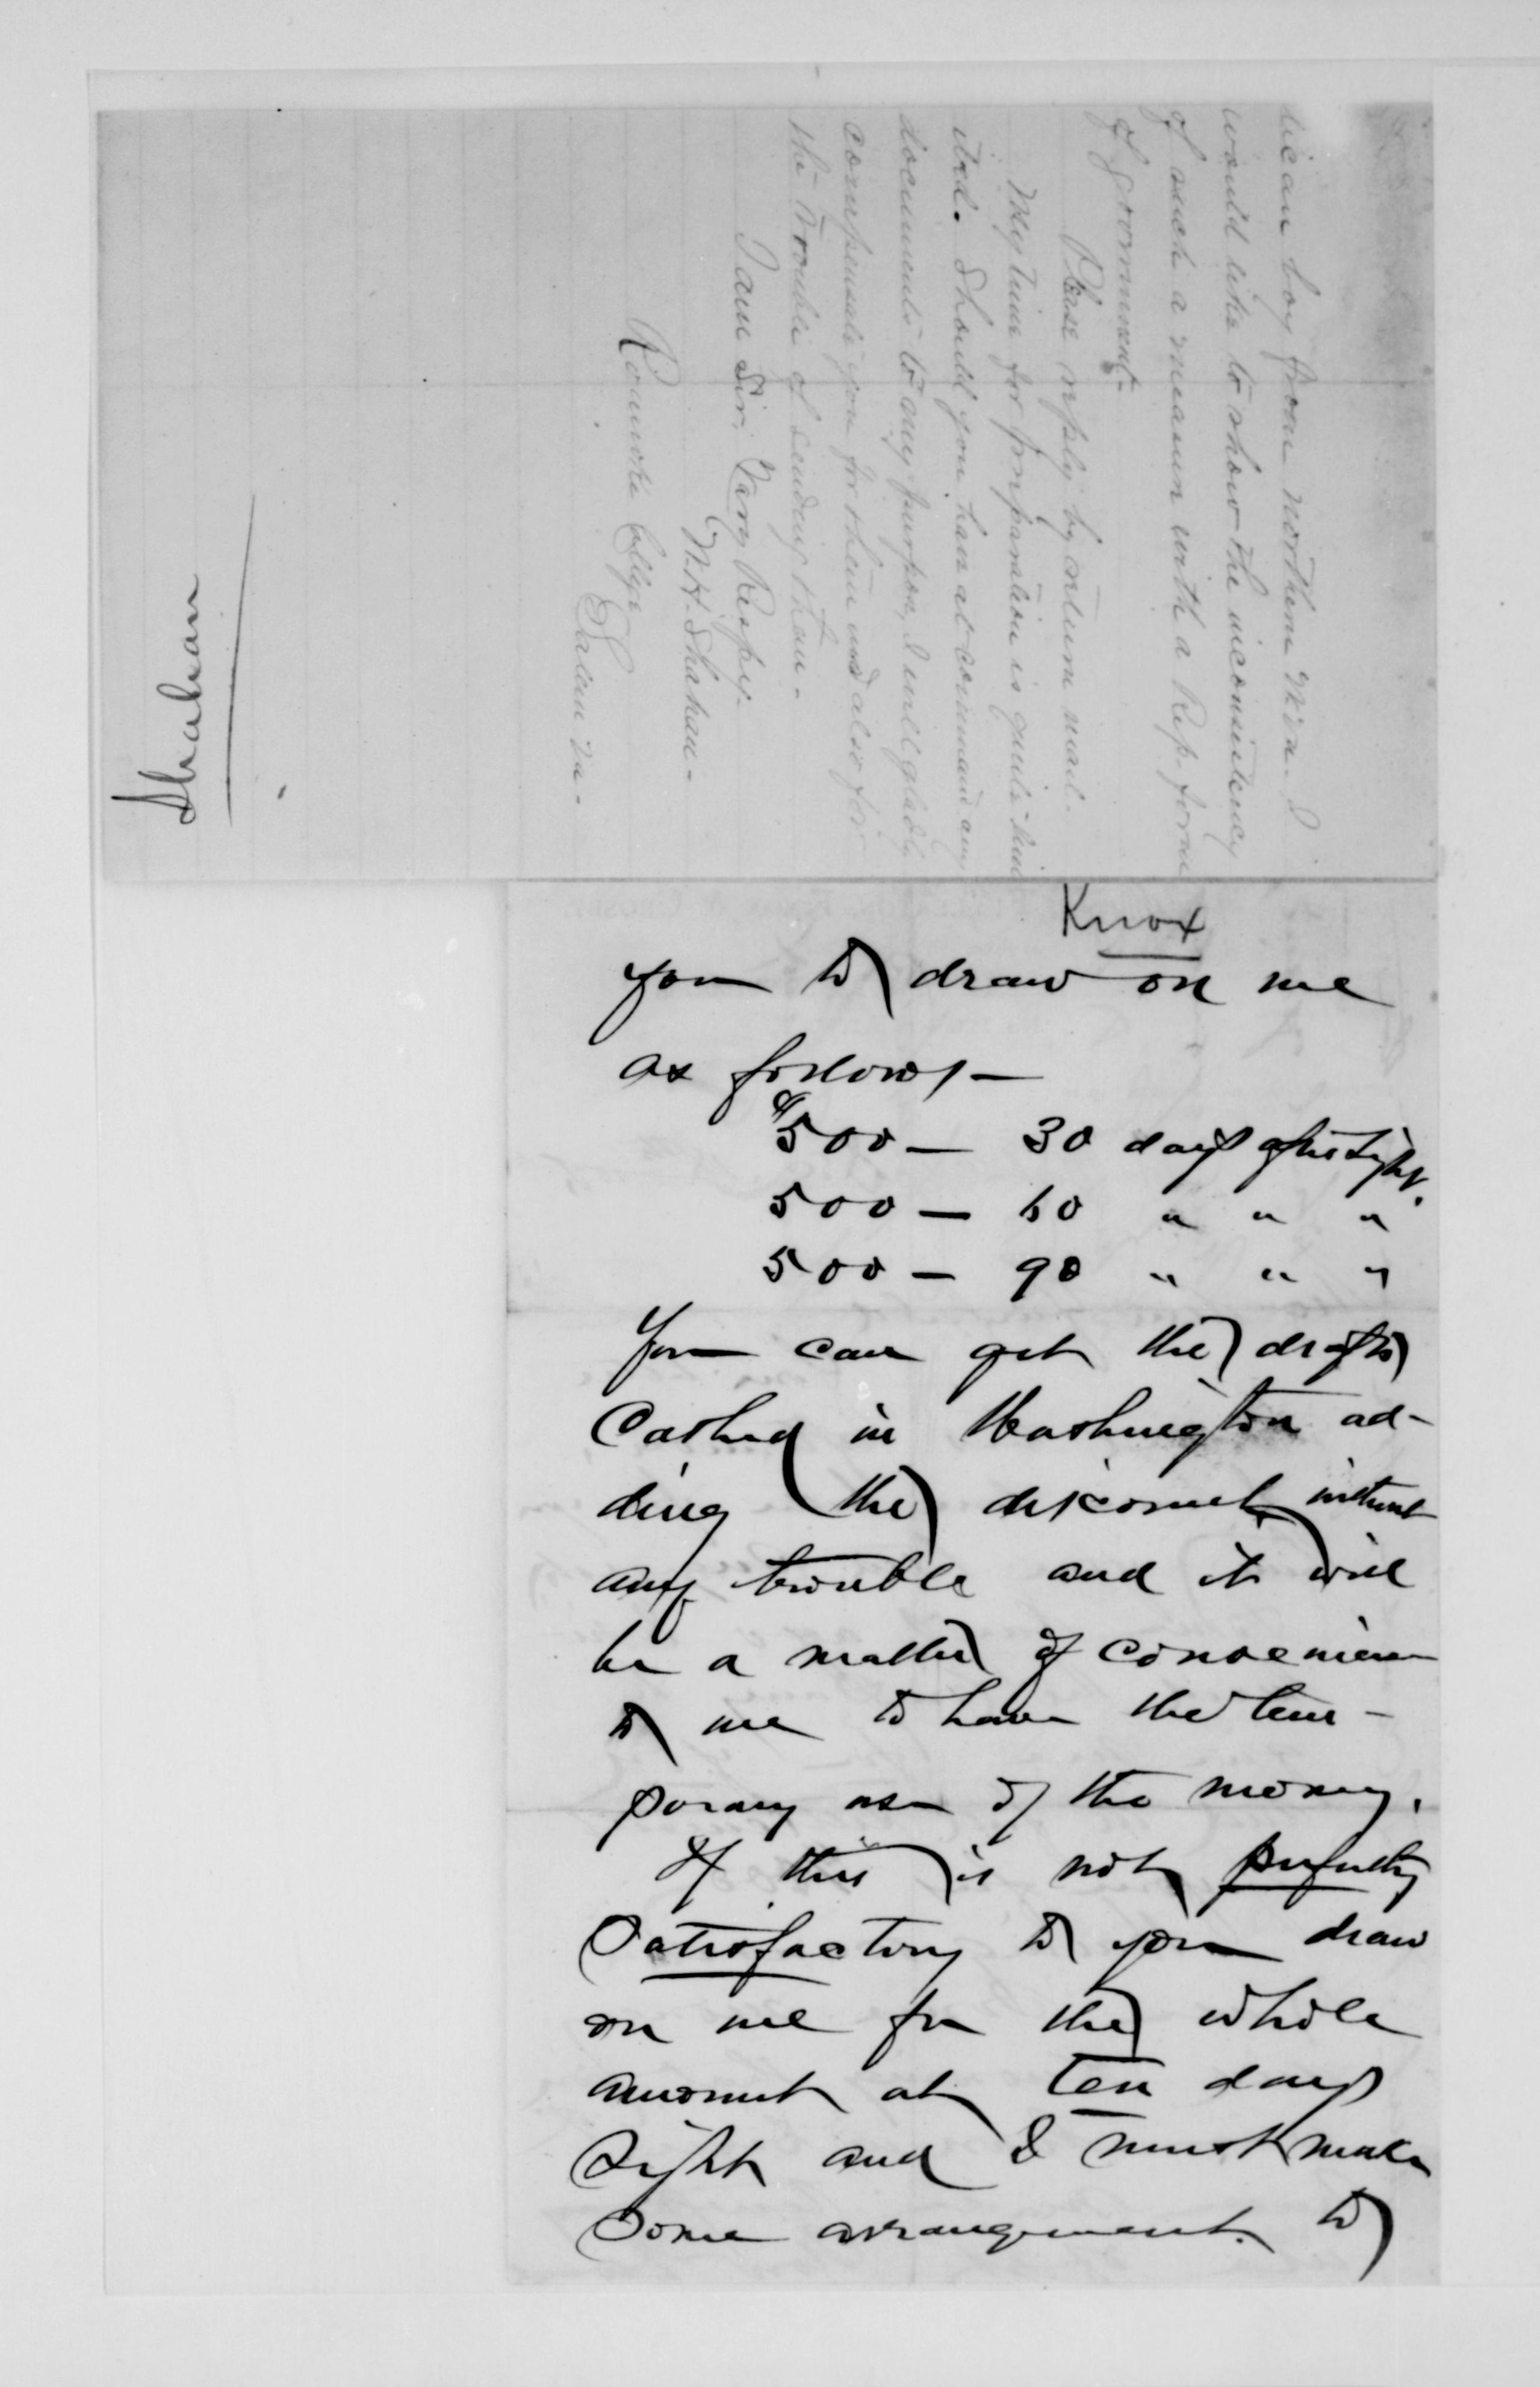 ican boy from northern Va. I
would like to show the inconsistency
of such a measure with a Rep. form
of government.
Please reply by return mail.
My time for preparation is quite lim
ited. Should you have at command any
documents to my purpose, I will gladly
compensate you for them and also for
the trouble of sending them.
I am Sir, Very Respy.
W. H. Shahan.
Roanoke College
Salem Va.
Shahan
Knox
you to draw on me
as follows—
$500— 30 days after sight.
500— 60 " " "
500— 90 " " "
You can get the drafts
Cashed in Washington ad-
ding the discount without
any trouble and it will
be a matter of convenience
to me to have the tem-
porary use of the money.
If this is not perfectly
Satisfactory to you draw
on me for the whole
amount at ten days
Sight and I must make
Some arrangement to